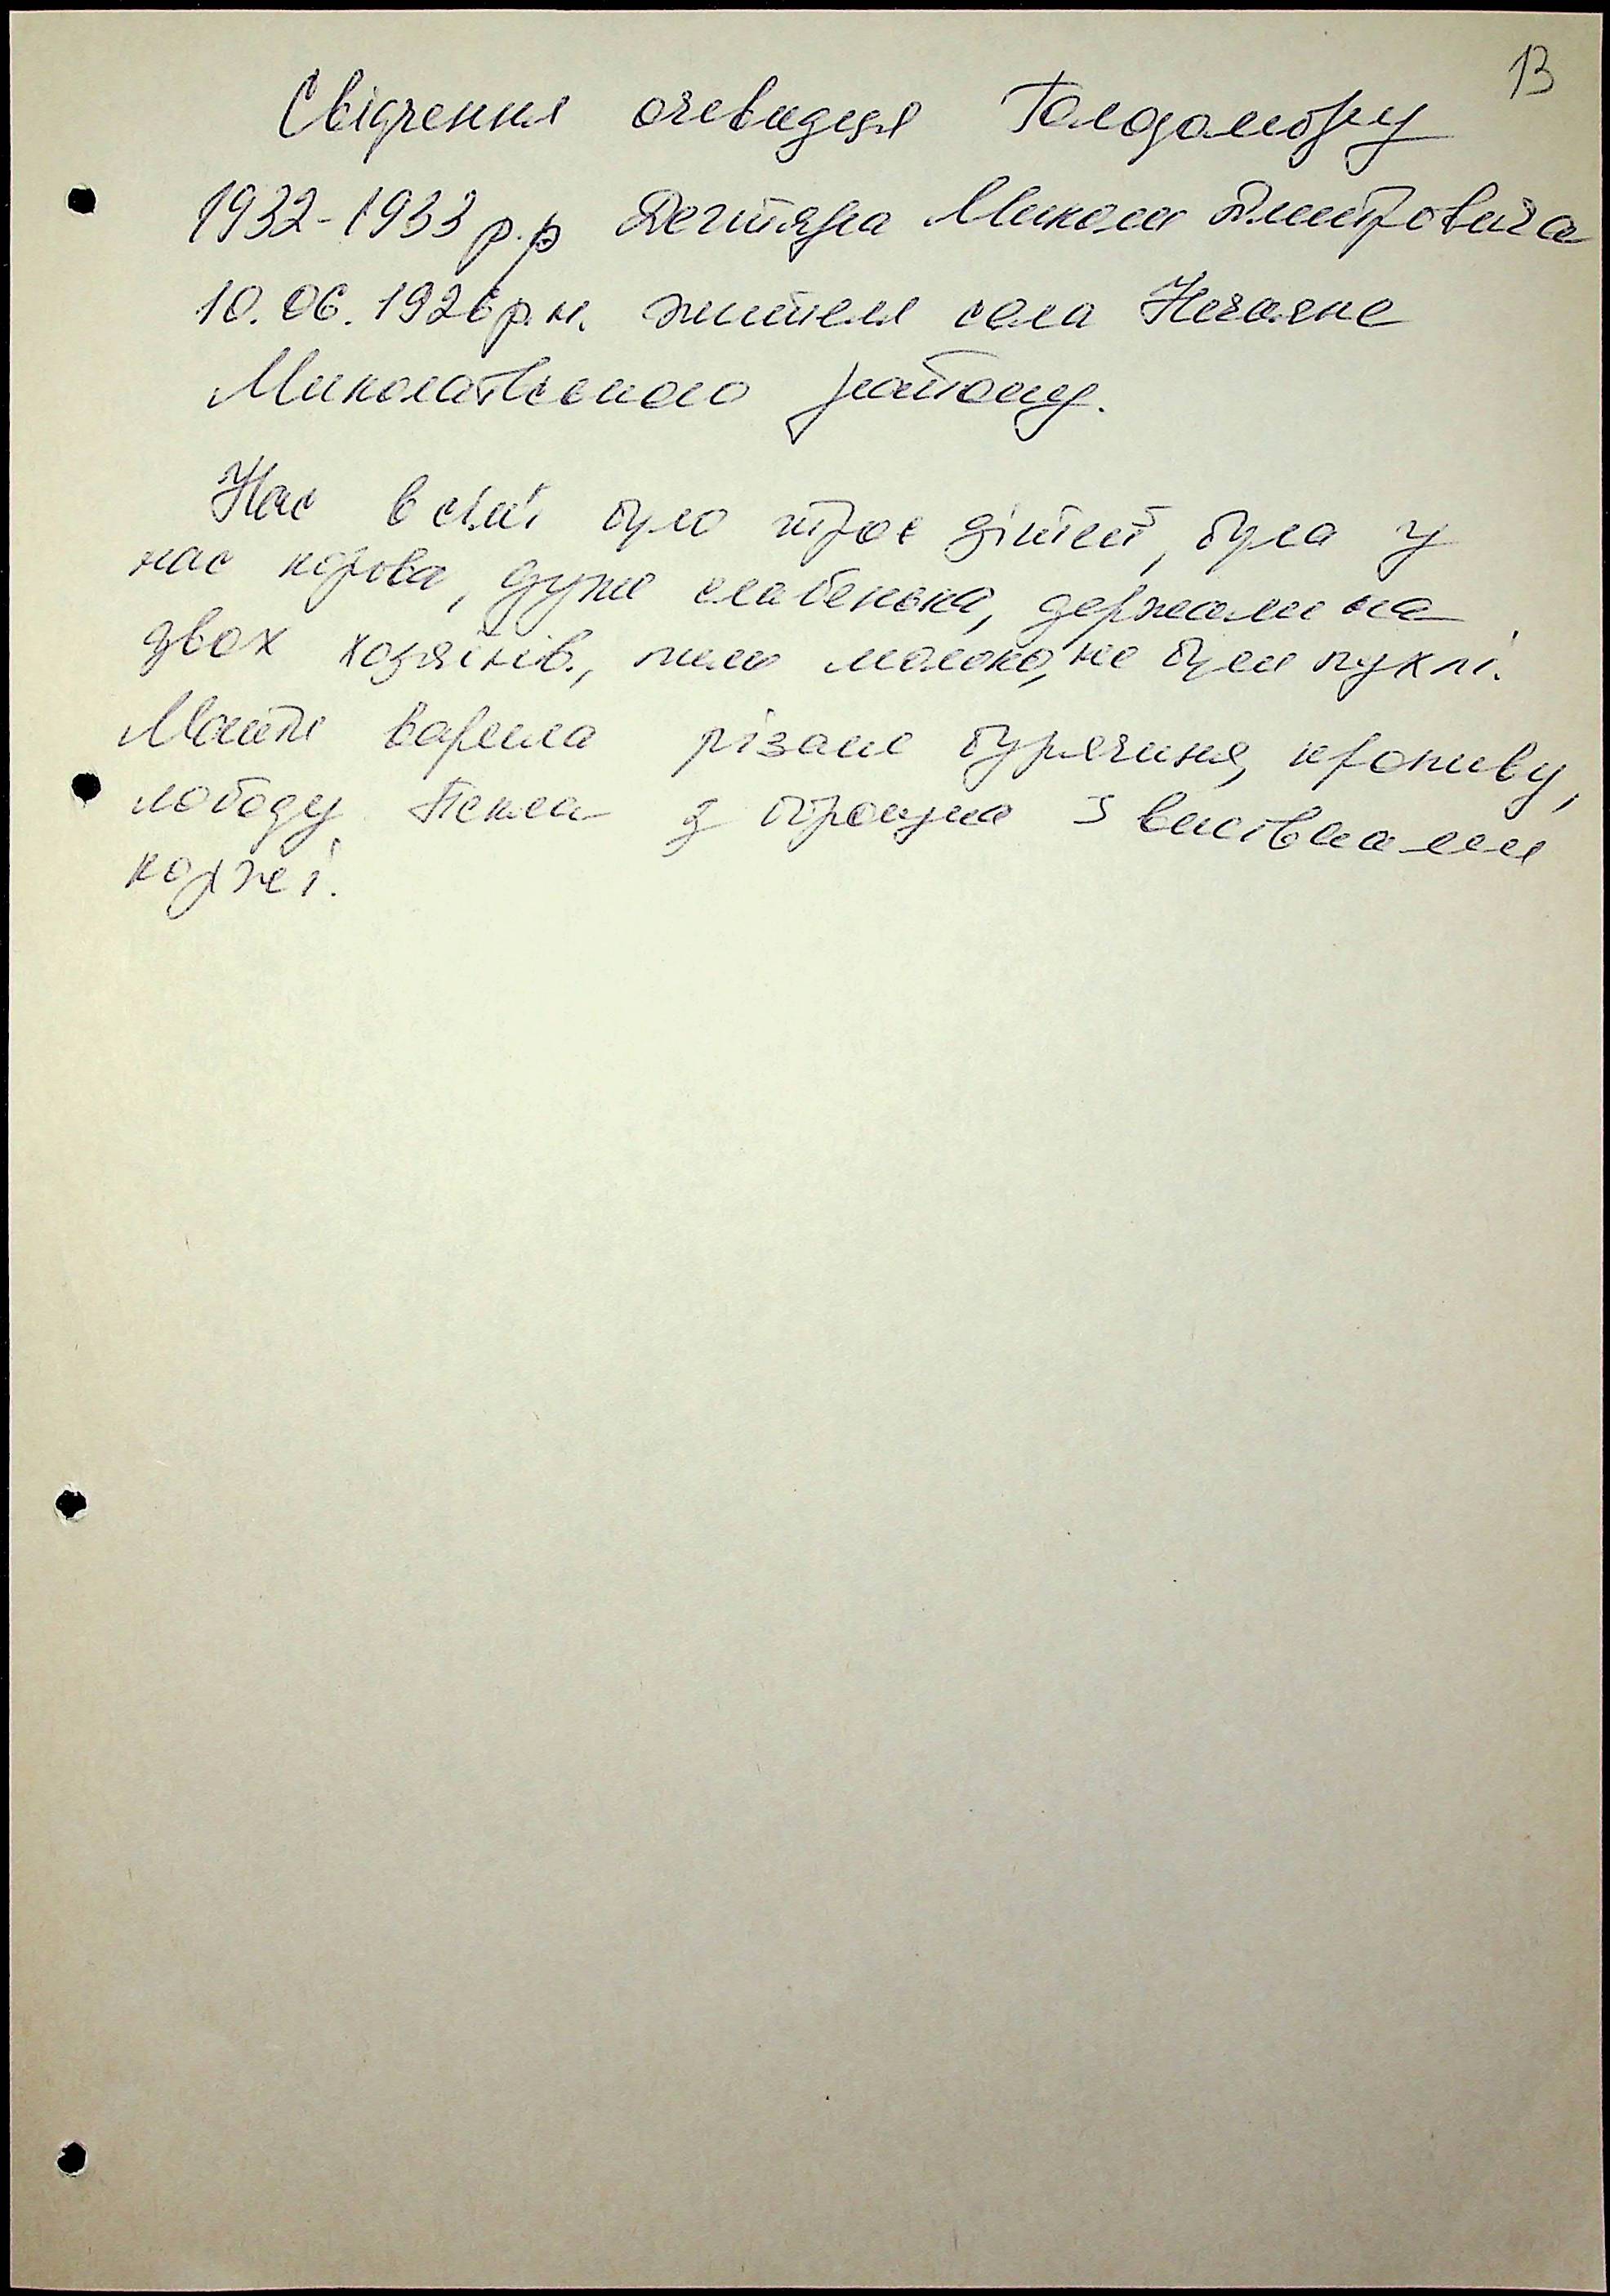 13
Свідчення очевидця Голодомору
1932-1933 р.р Дегтяра Миколи Дмитровича
10.06.1926 р.н. жителя села Нечаяне
Миколаївського району.
Нас в сім'ї було троє дітей, була у
нас корова, дуже слабенька, держали на
двох хозяїнів., пили молоко, не були пухлі.
Мати варила різане бурячиня, кропиву,
лободу. Пекла з
коржі.